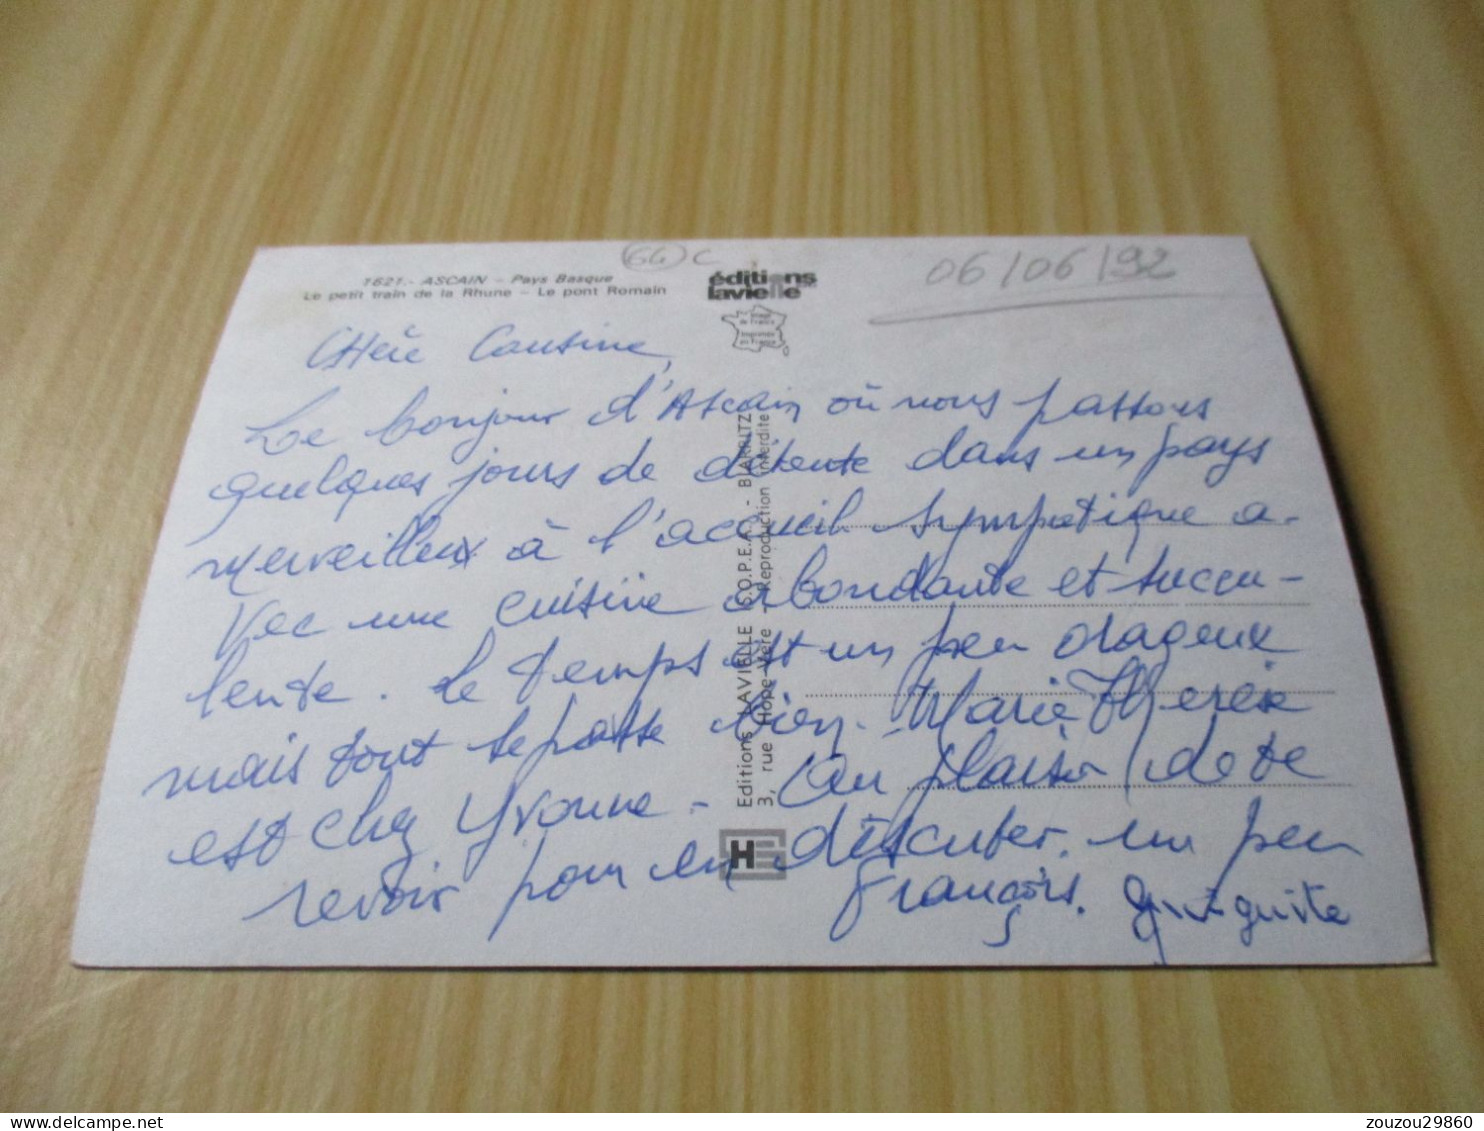 64 C
06/06/92
1621.- ASCAIN - Pays Basque
Le petit train de la Rhune - Le pont Romain
éditions
lavielle
Chère Cousine,
Le bonjour d'Ascain où nous passons
quelques jours de détente dans un pays
merveilleux à l'accueil sympatique a-
vec une cuisine abondante et succu-
lente. Le temps est un peu orageux
mais tout se passe bien. Marie Thérèse
est chez Yvonne - Au plaisir de te
revoir pour en discuter un peu
François.
Editions LAVIELLE (S.O.P.E.A.) - BIARRITZ
3, rue Hope-Vère - Reproduction interdite
H
zouzou29860